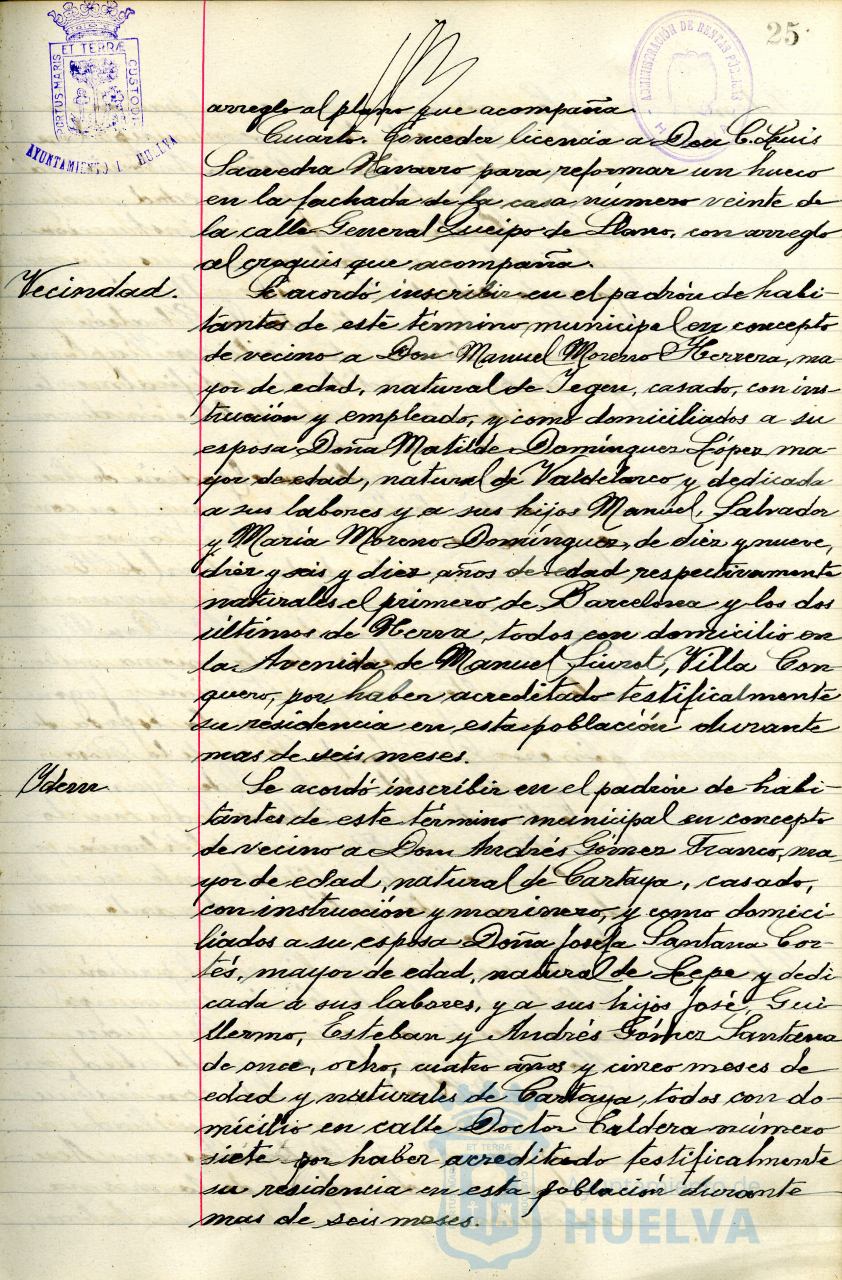 25
PORTUS MARIS ET TERRÆ CUSTODIA
AYUNTAMIENTO HUELVA
ADMINISTRACIÓN DE RENTAS PÚBLICAS
arreglo al plano que acompaña.
Cuarto. Conceder licencia a Don C. Luis
Saavedra Navarro para reformar un hueco
en la fachada de la casa número veinte de
la calle General Queipo de Llano, con arreglo
al croquis que acompaña.
Vecindad.
Se acordó inscribir en el padrón de habi-
tantes de este término municipal en concepto
de vecino a Don Manuel Moreno Herrera, ma-
yor de edad, natural de casado, con ins-
trucción y empleado, y como domiciliados a su
esposa Doña Matilde Domínguez López ma-
yor de edad, natural de Valdelarco y dedicada
a sus labores y a sus hijos Manuel, Salvador
y María Moreno Domínguez, de diez y nueve,
diez y seis y diez años de edad respectivamente
naturales el primero de Barcelona y los dos
últimos de Nerva, todos con domicilio en
la Avenida de Manuel Siurot, Villa Con-
quero, por haber acreditado testificalmente
su residencia en esta población durante
mas de seis meses.
Ydem
Se acordó inscribir en el padrón de habi-
tantes de este término municipal en concepto
de vecino a Don Andrés Gómez Franco, ma-
yor de edad, natural de Cartaya, casado,
con instrucción y marinero, y como domici-
liados a su esposa Doña Josefa Santana Cor-
tés, mayor de edad, natural de Lepe y dedi-
cada a sus labores, y a sus hijos José, Gui-
llermo, Esteban y Andrés Gómez Santana
de once, ocho, cuatro años y cinco meses de
edad y naturales de Cartaya, todos con do-
micilio en calle Doctor Caldera número
siete por haber acreditado testificalmente
su residencia en esta población durante
mas de seis meses.
Ayuntamiento de
HUELVA